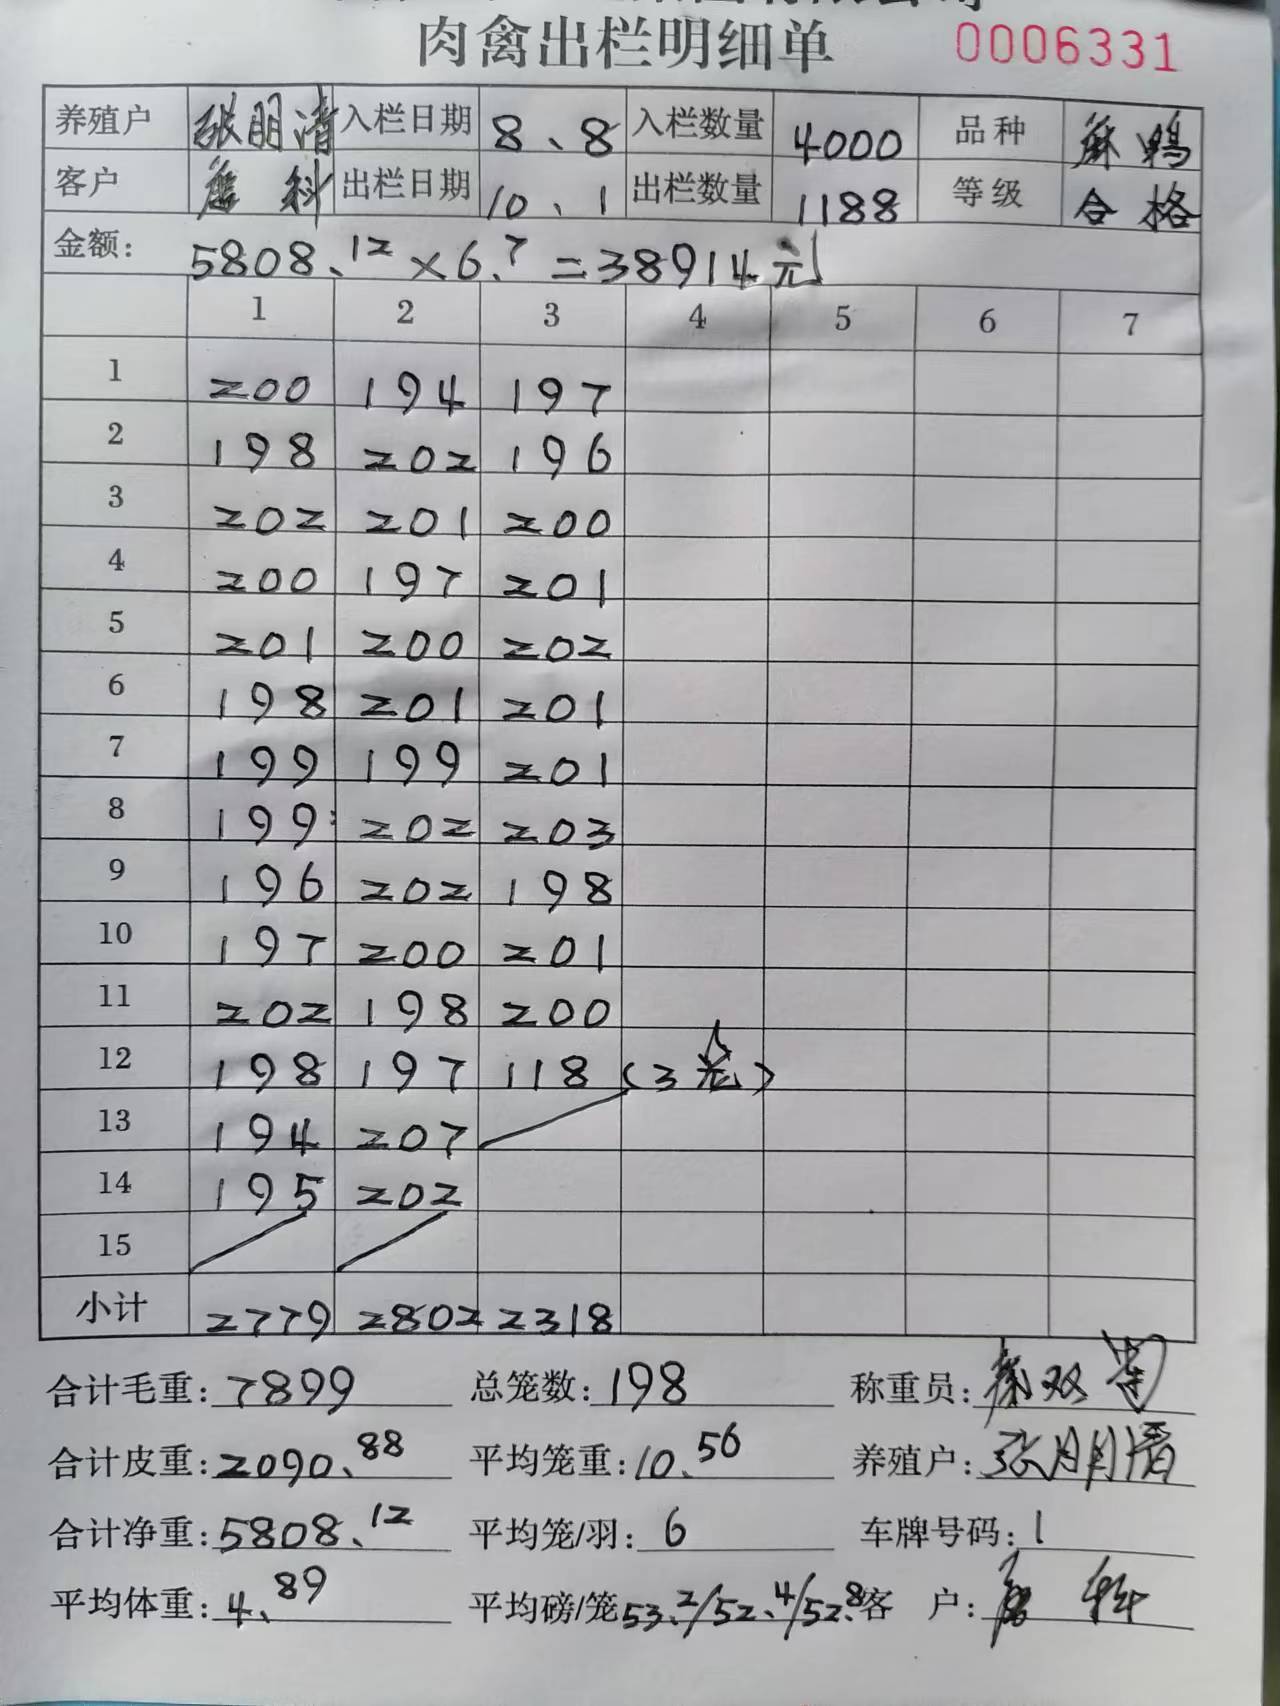 肉禽出栏明细单 0006331
养殖户 张朋清 入栏日期 8、8 入栏数量 4000 品种 麻鸭
客户 科 出栏日期 10、1 出栏数量 1188 等级 合格
金额: 5808.12×6.7=38914元
1 2 3 4 5 6 7
1 200 194 197
2 198 202 196
3 202 201 200
4 200 197 201
5 201 200 202
6 198 201 201
7 199 199 201
8 199 202 203
9 196 202 198
10 197 200 201
11 202 198 200
12 198 197 118 (3笼)
13 194 207
14 195 202
15
小计 2779 2802 2318
合计毛重: 7899 总笼数: 198 称重员: 双
合计皮重: 2090.88 平均笼重: 10.56 养殖户: 张朋清
合计净重: 5808.12 平均笼/羽: 6 车牌号码: 1
平均体重: 4.89 平均磅/笼 53.2/52.4/52.8 客户: 科